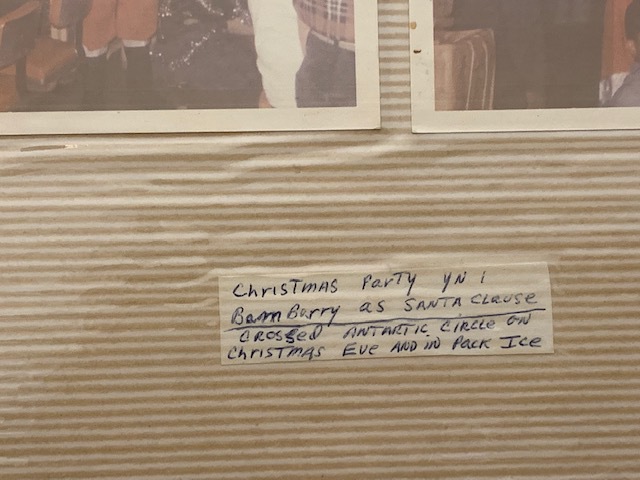 Christmas Party YN 1
BamBurry as SANTA Clause
CROSSED ANTARTIC CIRCLE ON
Christmas Eve AND IN Pack Ice